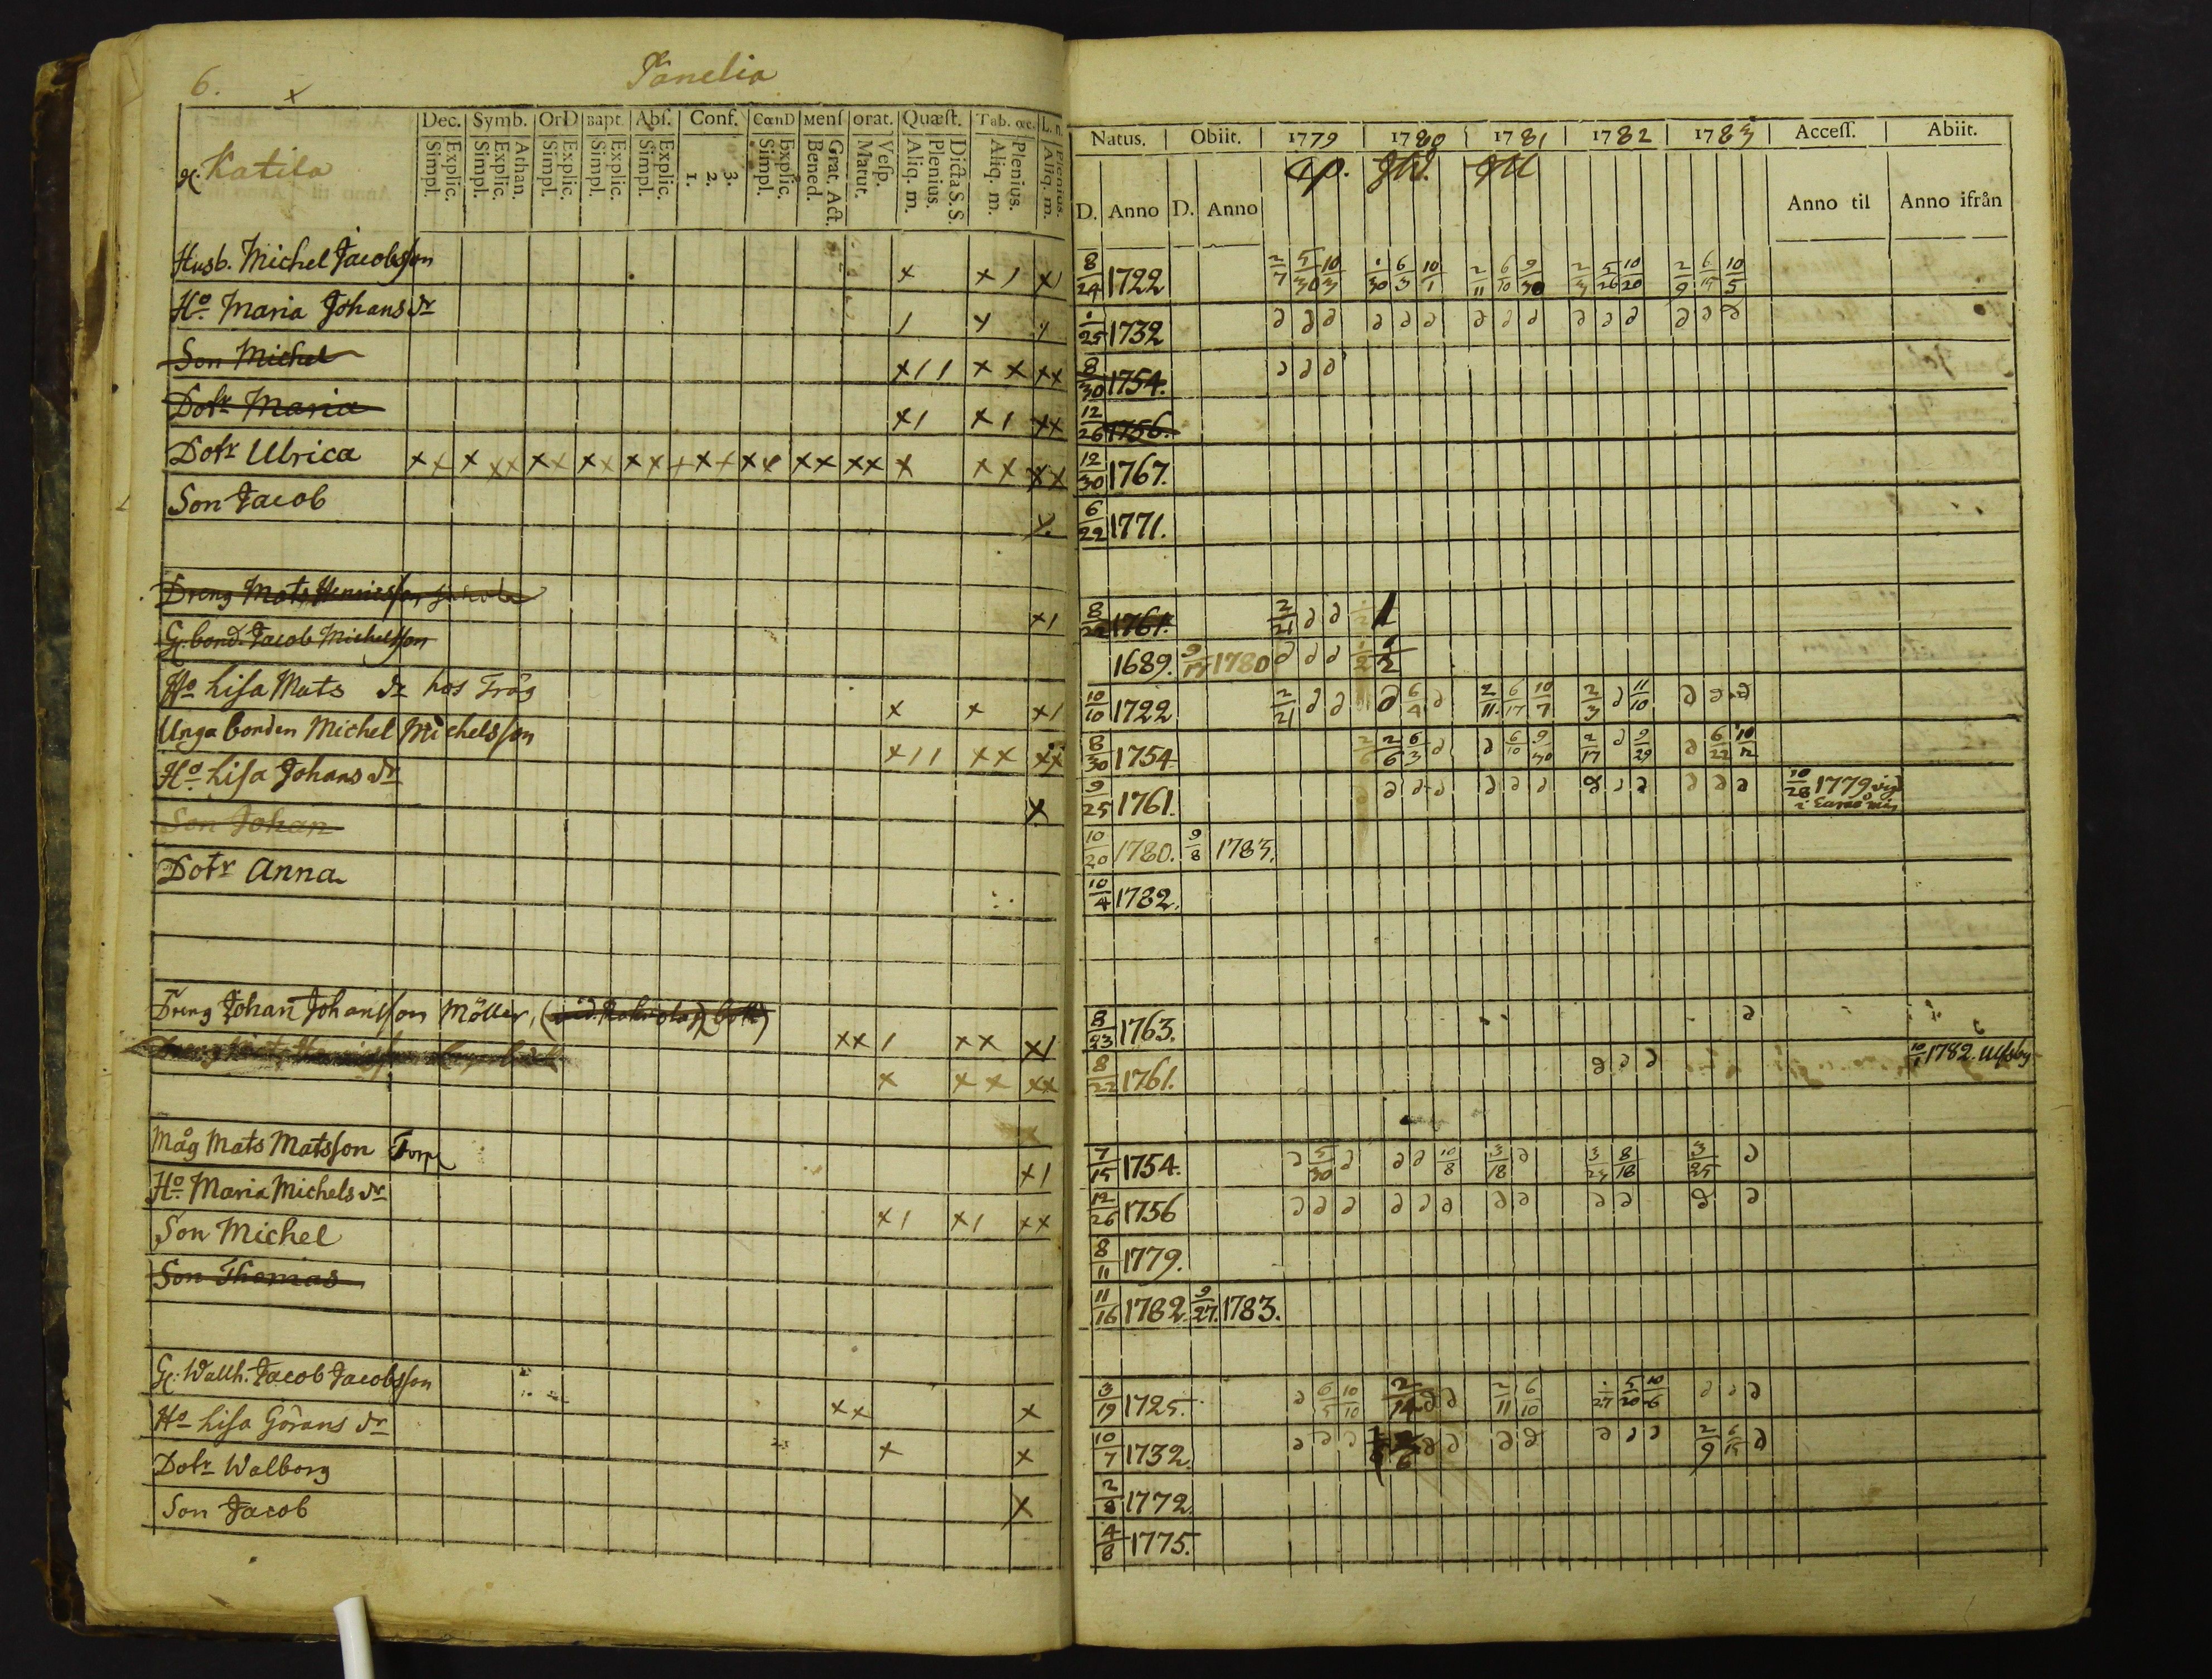 6. x Panelia
Dec. Symb. OrD Bapt. Abs. Conf. CœnD Mens orat. Quæst. Tab. œc. L. n.
Explic. Simpl. Athan. Explic. Simpl. Explic. Simpl. Explic. Simpl. Explic. Simpl. 3. 2. 1. Explic. Simpl. Grat. Act. Bened. Vesp. Matut. Dicta S. S. Plenius. Aliq. m. Plenius. Aliq. m. Plenius. Aliq. m.
Natus. Obiit. 1779 1780 1781 1782 1783 Access. Abiit.
D. Anno D. Anno Anno til Anno ifrån
Katila
Husb. Michel Jacobsson x x 1 x1 8/24 1722 2/7 5/30 10/3 1/30 6/3 10/1 2/11 6/10 9/30 2/3 5/26 10/20 2/9 6/15 10/5
Ho. Maria Johans dr 1/25 1732
Son Michel x11 x x xx 8/30 1754.
Dotr Maria x1 x1 xx 12/26 1756.
Dotr Ulrica 12/30 1767.
Son Jacob 6/22 1771.
Dreng Mats Henricsson x1 8/22 1761. 2/21
G. bond. Jacob Michelsson 1689. 1780
Ho Lisa Mats dr hos Fråg x x x1 10/10 1722 2/21 6/4 2/11. 6/17 10/7 2/3 11/10
Unga bonden Michel Michelsson x11 xx xx 8/30 1754 2/6 6/3 6/10 9/30 2/17 9/29 6/22 10/12
Ho. Lisa Johans dr x 9/25 1761. 10/28 1779. vigd
Son Johan 10/20 1780. 9/8 1783.
Dotr Anna 10/4 1782.
Dreng Johan Johansson Möller, xx 1 xx x1 8/23 1763.
Dreng Mats x xx xx 8/22 1761. 10/1 1782. Ulfsby
Måg Mats Matsson Torp x1 7/15 1754. 5/30 10/8 3/18 3/24 8/18 3/25
Ho. Maria Michels dr x1 x1 xx 12/26 1756
Son Michel 8/11 1779.
Son Thomas 11/16 1782. 9/27. 1783.
G. Wallh. Jacob Jacobsson xx x 3/19 1725. 6/5 10/10 2/14 2/11 6/10 1/27 5/20 10/6
Ho Lisa Görans dr x x 10/7 1732. 2/9 6/15
Dotr Walborg x 2/8 1772.
Son Jacob 4/8 1775.